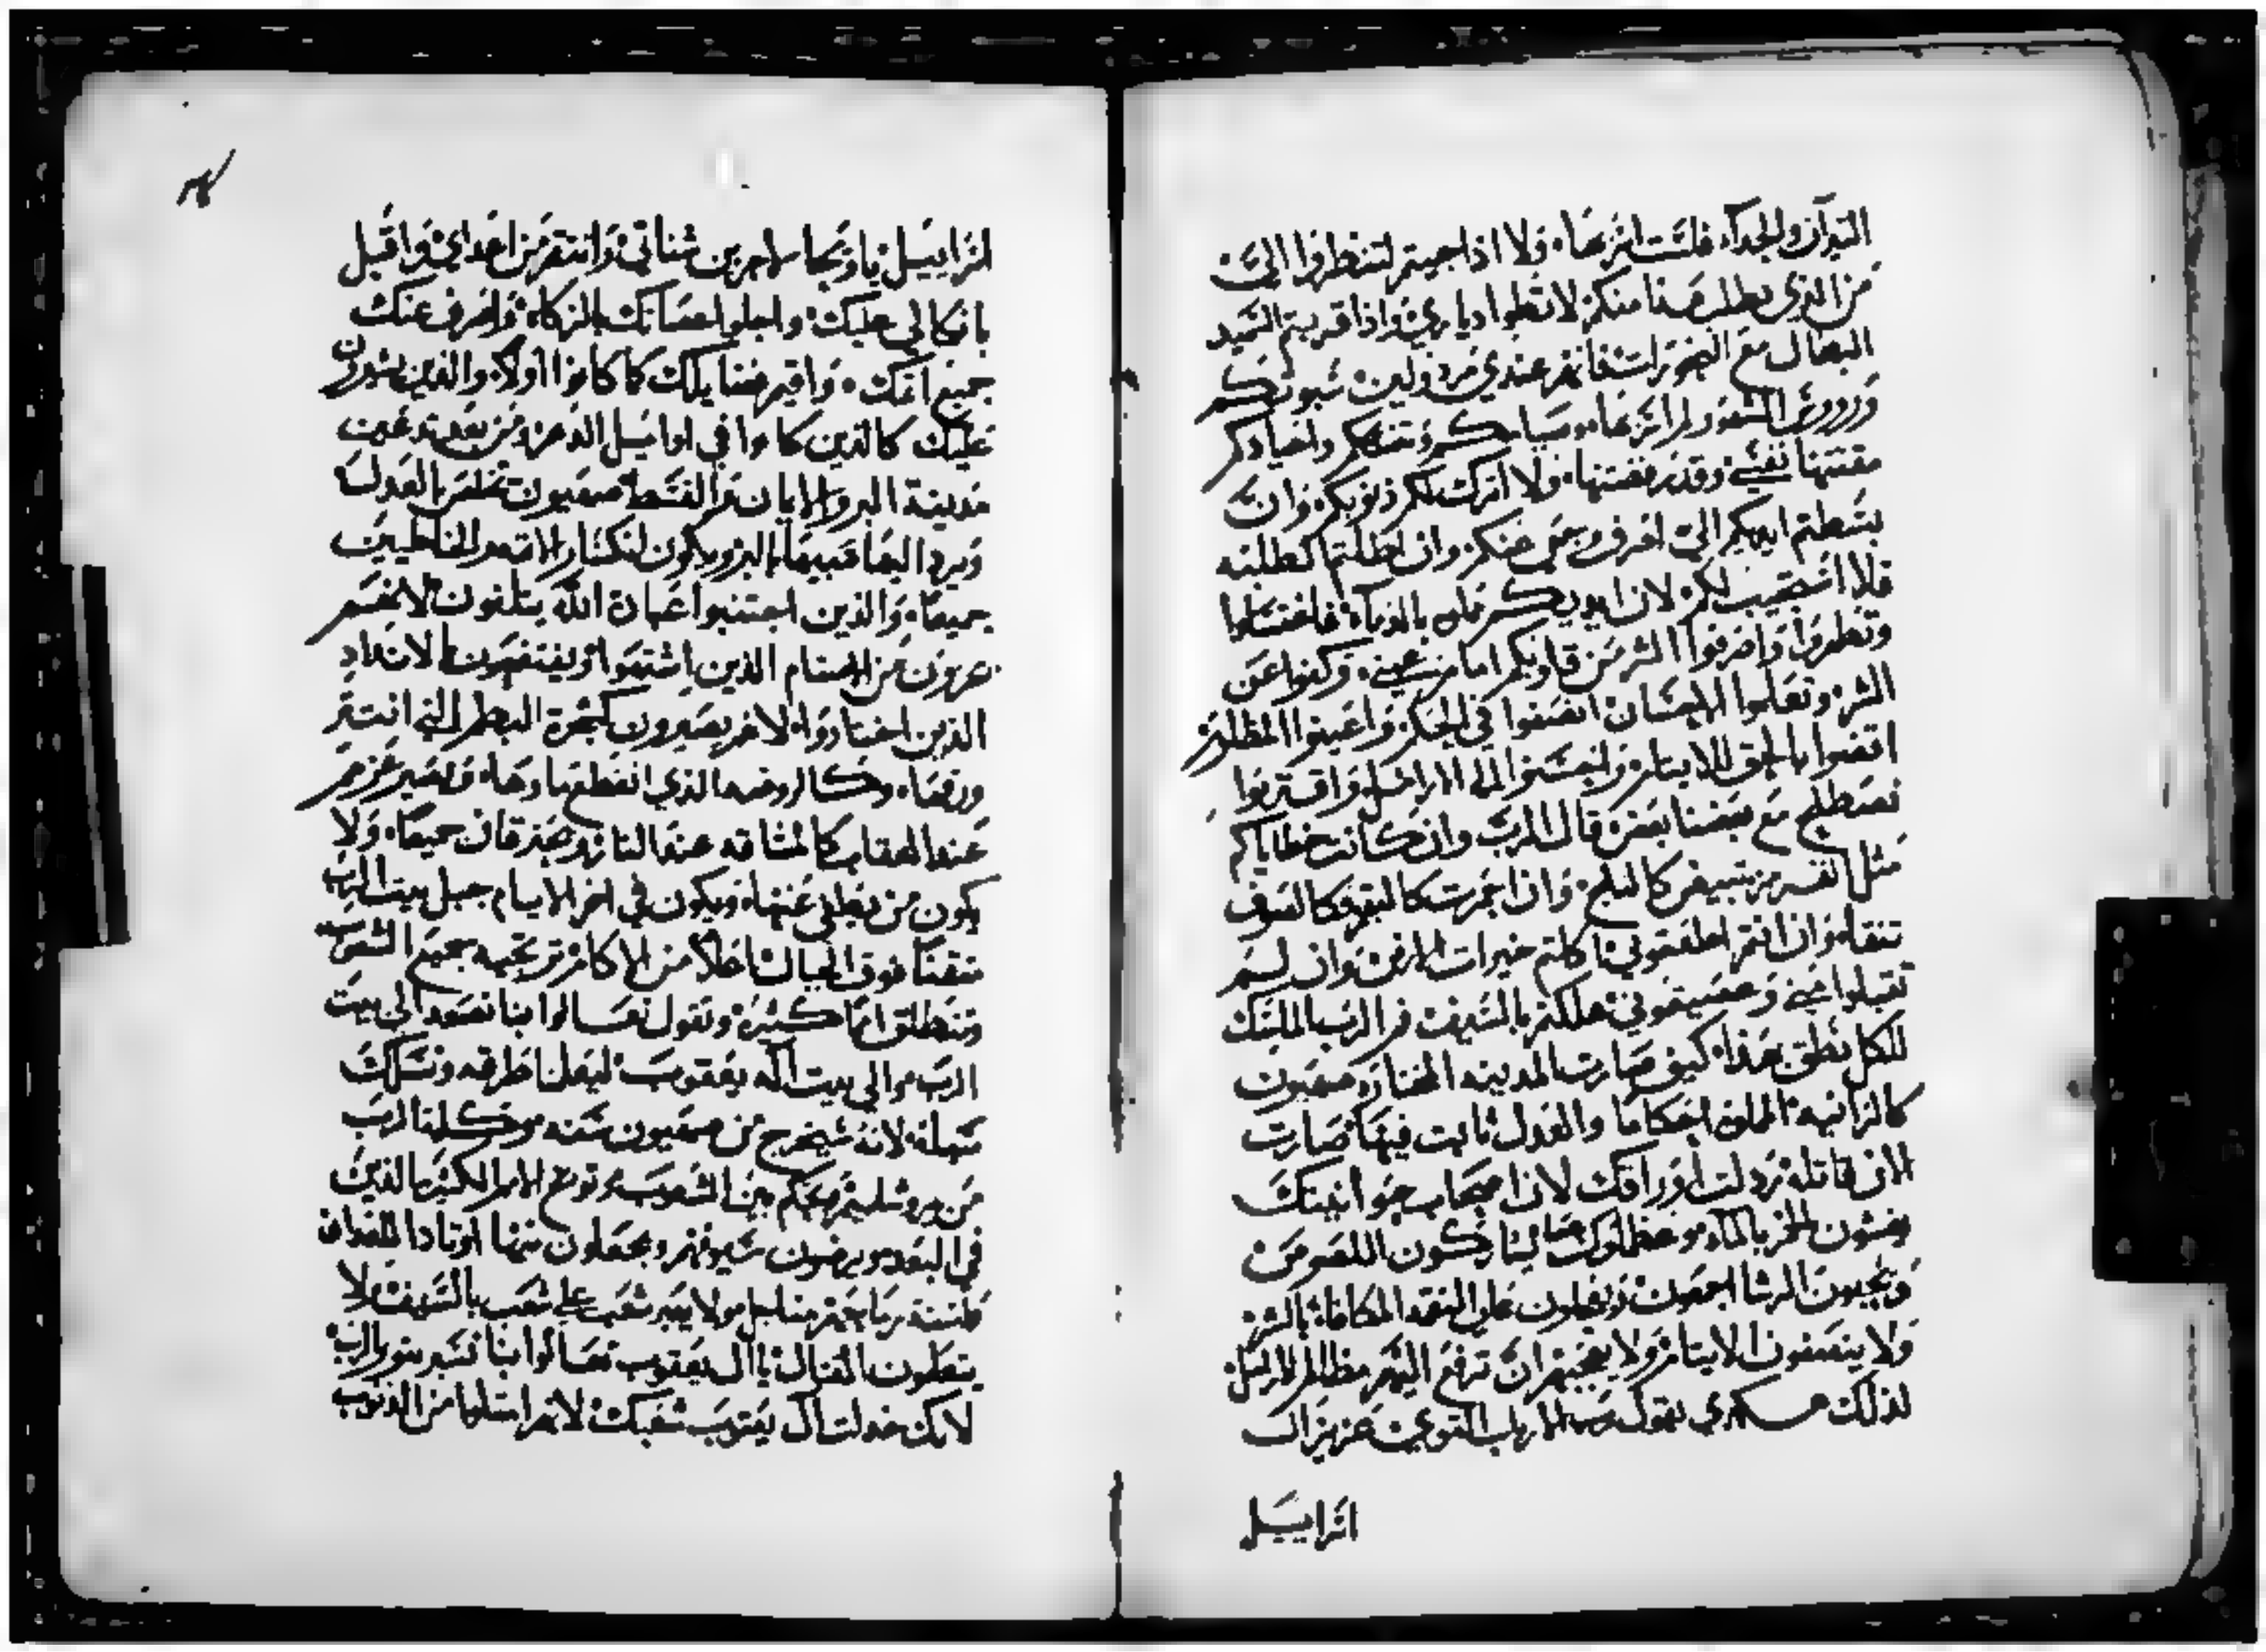 الثيران والجداء فلست اريدها، ولا اذا جيتم لتنظروا اليّ
من الذي يطلب هذا منكم لا تطوا دياري، واذا قربتم السميد
البطال مع البخورات فانهم عندي مرذولين، سبوتكم
وروس الشهور لم اريدها، صيامكم وتنسككم واعيادكم
مقتتها نفسي وقد رفضتها، ولا اترك لكم ذنوبكم، وان
بسطتم ايديكم اليّ اصرف وجهي عنكم، وان اطلتم الطلبه
فلا استجيب لكم، لان ايديكم ملى بالدماء، فاغتسلوا
وتطهروا واصرفوا الشر من قلوبكم امام عيني، وكفوا عن
الشر، وتعلموا الاحسان انصفوا في الحكم، واعينوا المظلومين
اقضوا بالحق للايتام، واحسنوا الى الارامل، واقتربوا
نصطلح مع بعضنا بعض، قال الرب وان كانت خطاياكم
مثل القرمز تبيض كالثلج، وان احمرت كالبقم، كالصوف
تنقا، وان انتم اطعتموني اكلتم خيرات الارض، وان لم
تقبلوا مني وعصيتموني هلكتم بالسيف فم الرب المالك
للكل نطق بهذا، كيف صارت المدينه المختاره صهيون
كالزانيه، الملوه احكاما والعدل ثابت فيها، صارت
الان قاتله، رذلت اوراقك لان اصحاب حوانيتك
يغشون الخمر بالماء، وعظماوك عصا يشاركون اللصوص
ويحبون الرشا اجمعون، ويعملون على النقمه المكافاة بالشر
ولا ينصفون الايتام، ولا يعجبهم ان ترفع اليهم مظالم الارامل
لذلك هكذي يقول رب الارباب القوي، عزيز ال
اسراييل
اسراييل، يا ويحا ساجرين شناتي، وانتقم من اعداي، واقبل
بانكالي عليك، واجلوا عصاتك بالزكاه، واصرف عنك
جميع اثمك، واقيم قضاياك كما كانوا اولا، والذين يشيرون
عليك كالذين كانوا في اوايل الدهر، ومن بعد تدعين
مدينة البر والايمان، ام القسط صهيون تخلص بالعدل
ويرد اليها سبيها بالبر، ويكون انكسار الاثمه والخاطيين
جميعا، والذين اجتنبوا عبادة الله يتلفون لانهم
يخزون من الاصنام الذين اشتهوا، ويفتضحون بالانداد
الذين اختاروا، لانهم يصيرون كشجرة البطم التي انتثر
ورقها، وكالروضه الذي انقطع ماوها، ويصير عزهم
عند العقاب كالمشاقه عند النار، ويحترقان جميعا، ولا
يكون من يطفي عنها، ويكون في اخر الايام جبل بيت الرب
متقنا فوق الجبال شاخلا من الاكام، وتجيه جميع الشعوب
وتنطلق امما كثيره، وتقول تعالوا بنا نصعد الى بيت
الرب، والى بيت اله يعقوب، ليعلمنا طرقه ونسلك
سبله، لانه سيخرج من صهيون سنه، وكلمة الرب
من يروشليم، ويحكم بين الشعوب، وتوبخ الامم الكثيره الذين
في البعد، ويرضون سيوفهم، ويجعلون منها اوتادا للفدان
واسنة رماحهم مناجل، ولا يعبر شعب على شعب بالسيف، ولا
يتعلمون القتال، يا ال يعقوب تعالوا بنا نسير بنور الرب
لانك خذلت ال يعقوب شعبك، لانهم امتلوا من الذنوب